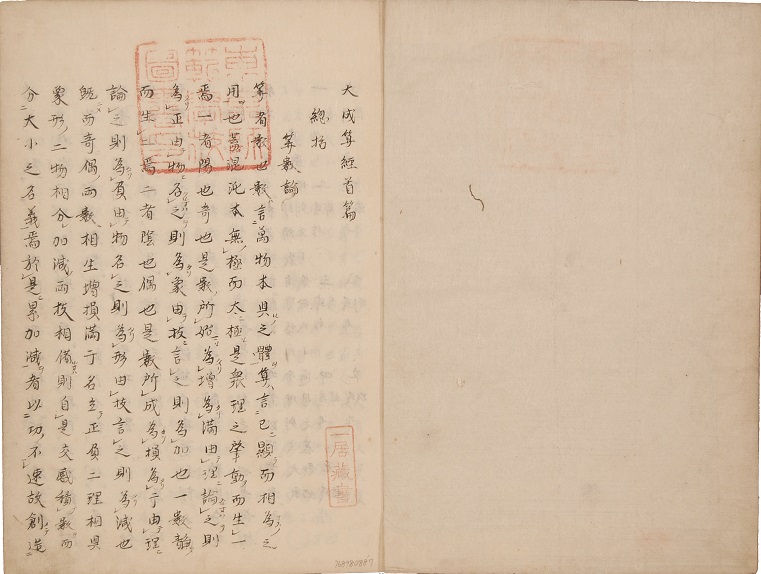 大成算經首篇
總括
算數論
算者數也數言萬物本具之體算言已顯而相為之
用也蓋混沌本無極而太極是衆理之肇動而生一
焉一者陽也奇也是數所始為增為滿由理論之則
為正由物名之則為象由技言之則為加也一數靜
而生二焉二者陰也偶也是數所成為損為亏由理
論之則為負由物名之則為形由技言之則為減也
既而奇偶両數相生增損滿亏名立正負二理相具
象形二物相分加減両技相備則自是交感積數而
分大小之名義焉於是累加減者以功不速故創造
居藏書